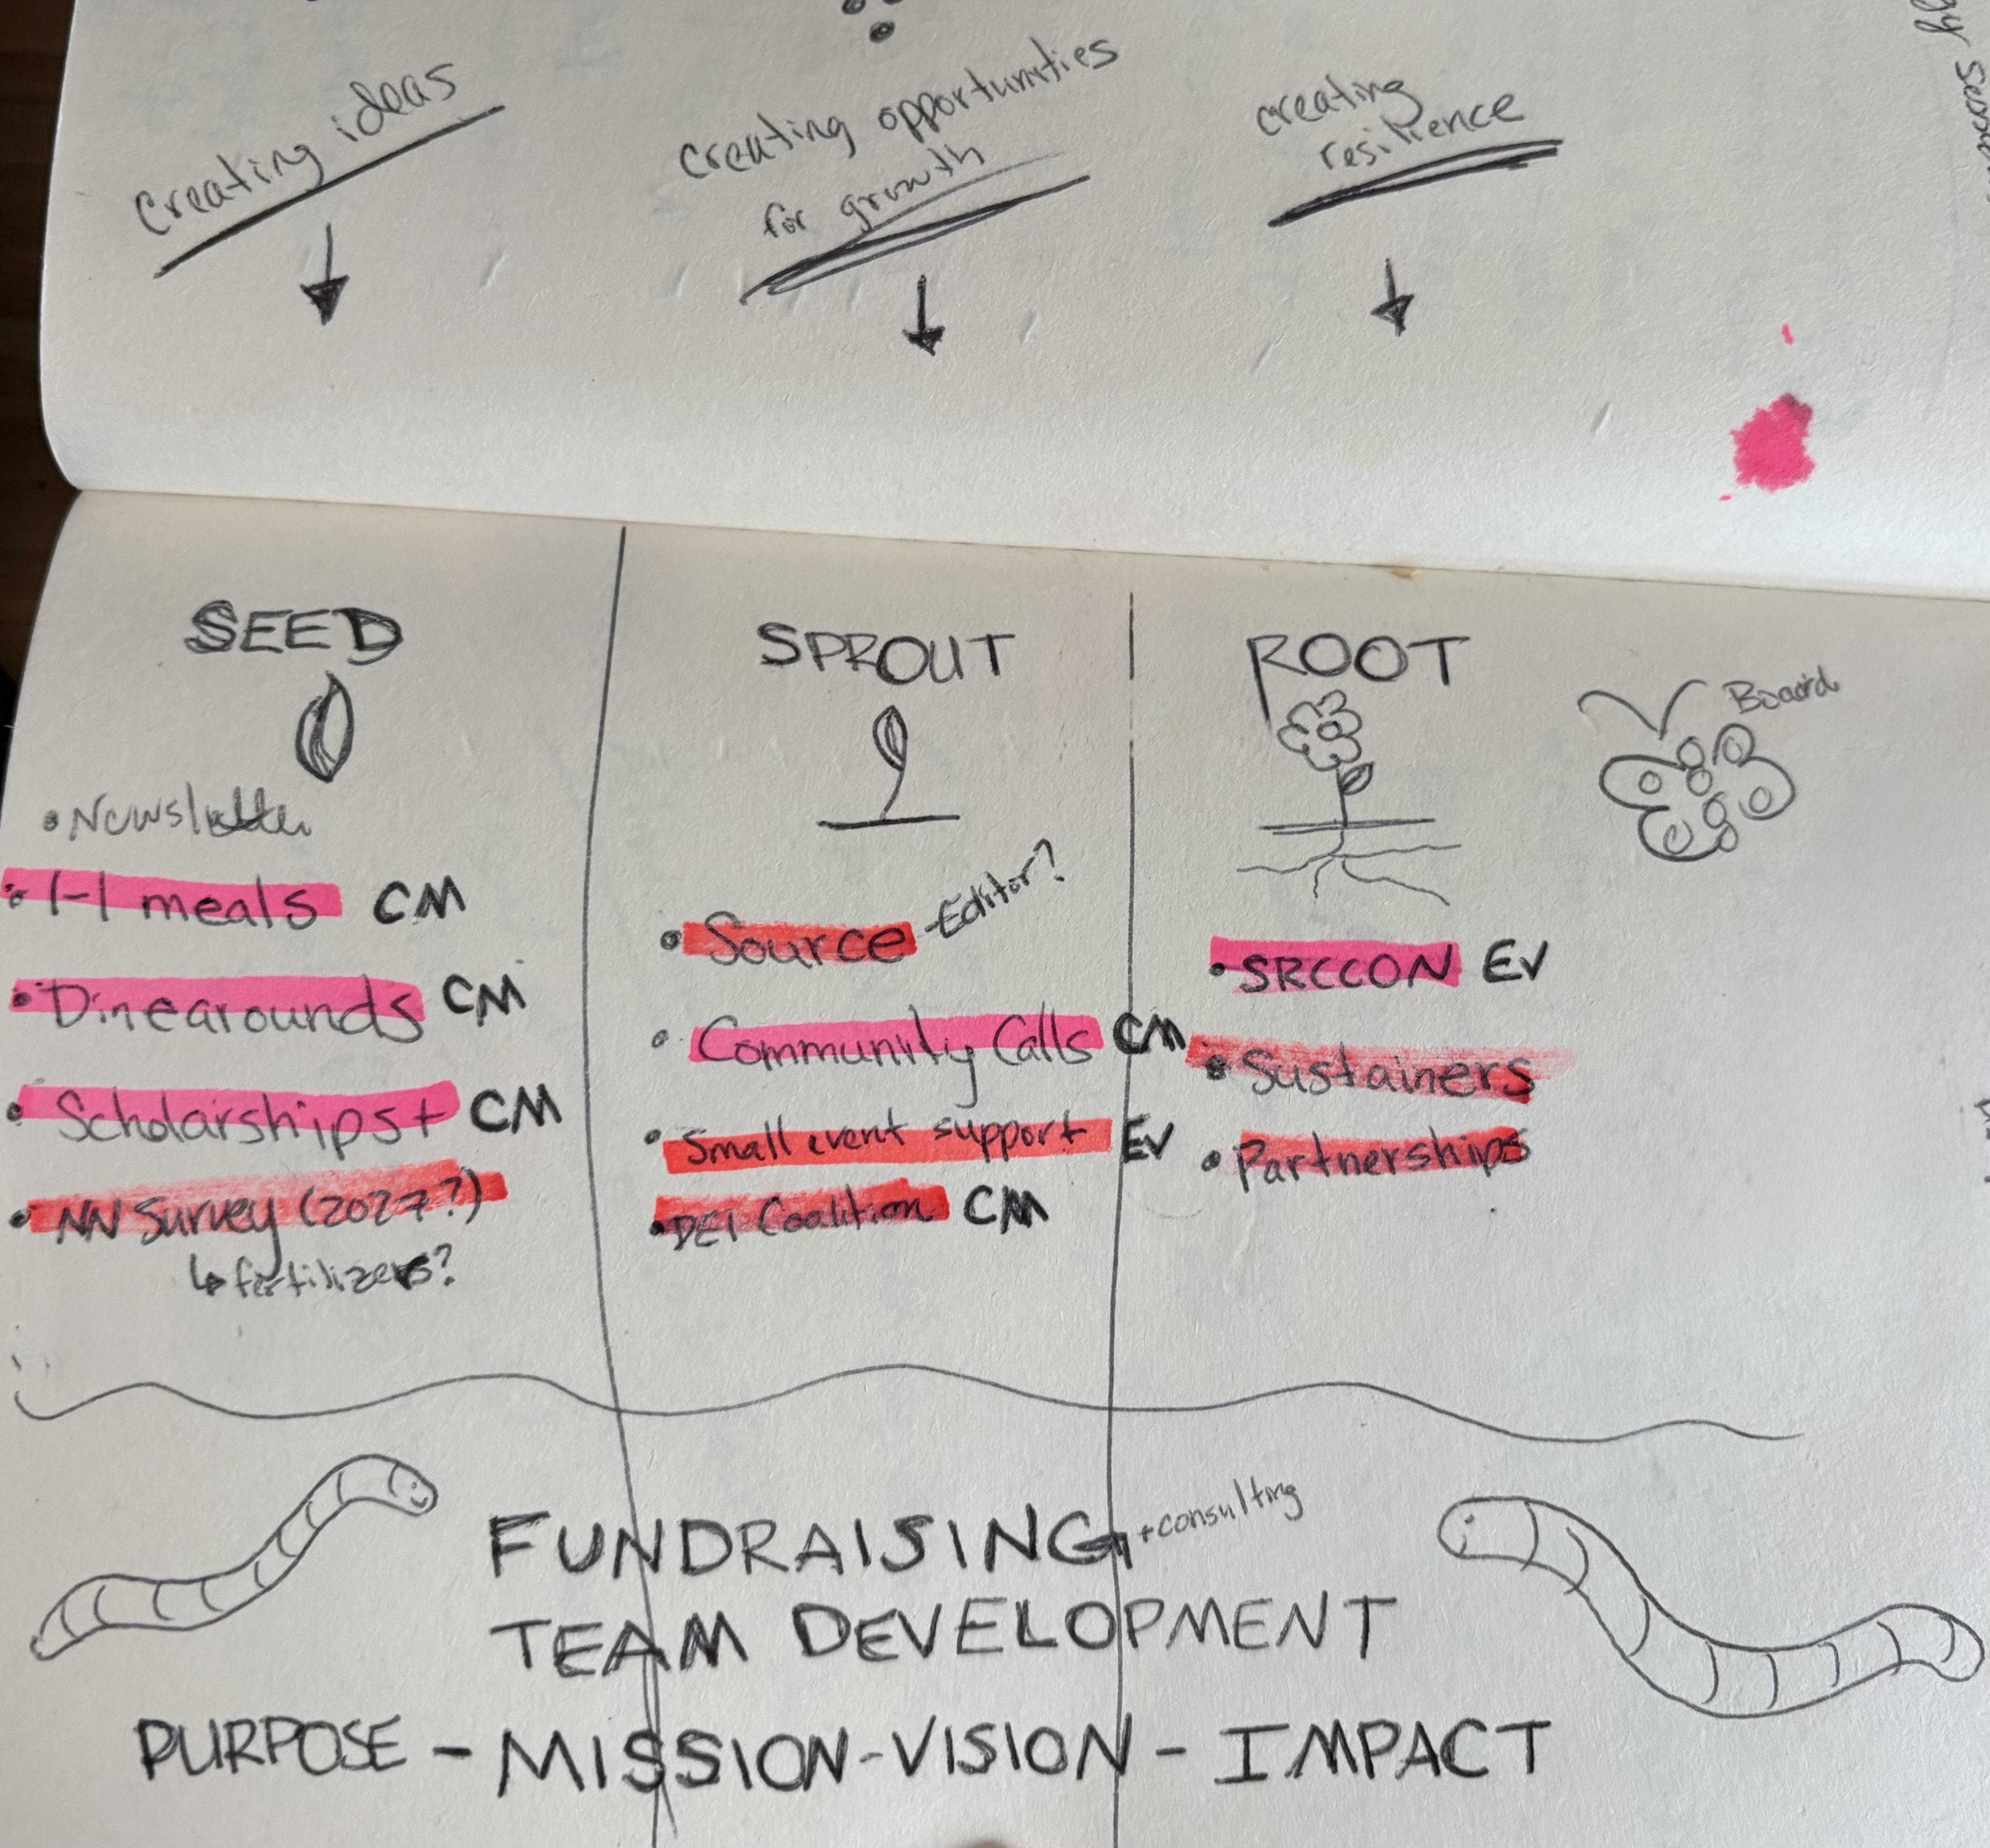 Creating ideas
Creating opportunities
for growth
creating
resilience
SEED
SPROUT
ROOT
Board
• Newsletter
• 1-1 meals CM
• Dinearounds CM
• Scholarships+ CM
• NN Survey (2027?)
↳ fertilizers?
• Source - Editor?
• Community Calls CM
• Small event support EV
• DEI Coalition CM
• SRCCON EV
• Sustainers
• Partnerships
FUNDRAISING + consulting
TEAM DEVELOPMENT
PURPOSE - MISSION - VISION - IMPACT